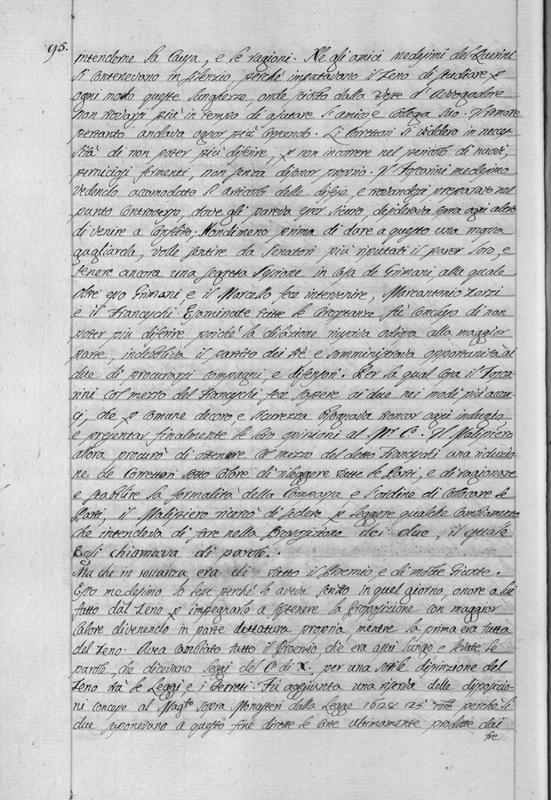 95.
intenderne la Causa, e le ragioni. Ne gli amici medesimi del Querini
si contenevano in silenzio, perché imputavano il Zeno di studiare p
ogni modo queste longhezze, onde sciolto dalla Veste d'Avogadore
non trovarsi più in tempo di ajutare l'amico e collega suo. Il rumore
pertanto andava ogni più crescendo. Li Correttori si viddero in neces-
sità di non poter più differire, p non incorrere nel pericolo di nuovi,
perniciosi fermenti, non senza disonor proprio. Il Foscarini medesimo
vedendo accomodato l'articolo delle difese, e trovandosi preparato nel
punto Controverso, dove gli pareva esser sicuro, desiderava sopra ogni altro
di venire a Conflitto. Nondimeno prima di dare a questo una mossa
gagliarda, volle sentire da Senatori più riputati il parer loro, e
tenere ancora una segreta Unione in Casa de Grimani alla quale
oltre esso Grimani e il Marcello fece intervenire, Marcantonio Zorzi
e il Franceschi. Esaminate tutte le Circostanze, fù Conchiuso di non
poter più differire poiché la dilazione riusciva odiosa alla maggior
parte, indeboliva il partito dei trè e somministrava opportunità ai
due di procurarsi compagni, e difensori. Per la qual Cosa il Fosca-
rini col mezzo del Franceschi fece sapere ai due nei modi più accon-
cj, che p comune decoro, e sicurezza bisognava troncar ogni indugio
e presentar finalmente le loro opinioni al Mr. Co. Il Malipiero
allora procurò di ottenere col mezzo del detto Franceschi una riduzio-
ne de Correttori sotto colore di rileggere tutte le Parti, e di ragionare
e stabilire la formalità della Comparsa e l'ordine di collocare le
Parti, il Malipiero ricercò di sedere p leggere qualche Cambiamento
che intendeva di fare nella Proposizione dei due, il quale
Egli chiamava di parole.
Ma che in sostanza era di tutto il Proemio, e di molte Giunte.
Esso medesimo lo lesse perché lo aveva scritto in quel giorno, onore a lui
fatto dal Zeno p impegnarlo a sostenere la Proposizione con maggior
calore divenendo in parte dettatura propria mentre la prima era tutta
del Zeno. Avea cambiato tutto il Proemio ch'era assai lungo e levate le
parole, che dicevano leggi del C. di X. per una sottile distinzione del
Zeno tra le Leggi e i Decreti. Fù aggiunta una riserva delle disposizio-
ni concesse al Magto. sopra Monasteri dalla Legge 1628. 25 7bre perché li
due supponevano a questo fine dirette le Carte ultimamente prodotte dai
tre